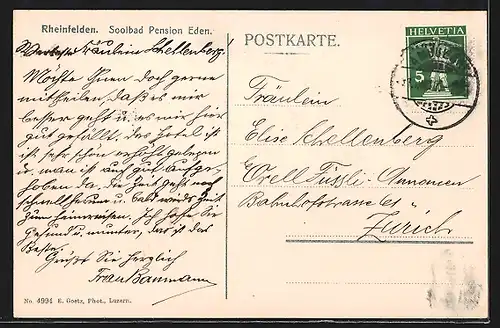 Rheinfelden. Soolbad Pension Eden.
Werteste Fräulein Schellenberg!
Möchte Ihnen doch gerne
mittheilen, daß es mir
besser geht u. es mir hier
gut gefällt, das Hotel ist
ist sehr schön erhöht gelegen
u. man ist auch gut aufge-
hoben da, die Zeit geht noch
schnell herum u. bald wirds Zeit
zum Heimreisen. Ich hoffe Sie
gesund u. munter, das ist das
Beste.
Grüßt Sie herzlich
Frau Baumann
No. 4994 E. Goetz, Phot., Luzern.
POSTKARTE.
HELVETIA
5
Fräulein
Elise Schellenberg
Orell Füssli-Annoncen
Bahnhofstrasse 61
Zürich